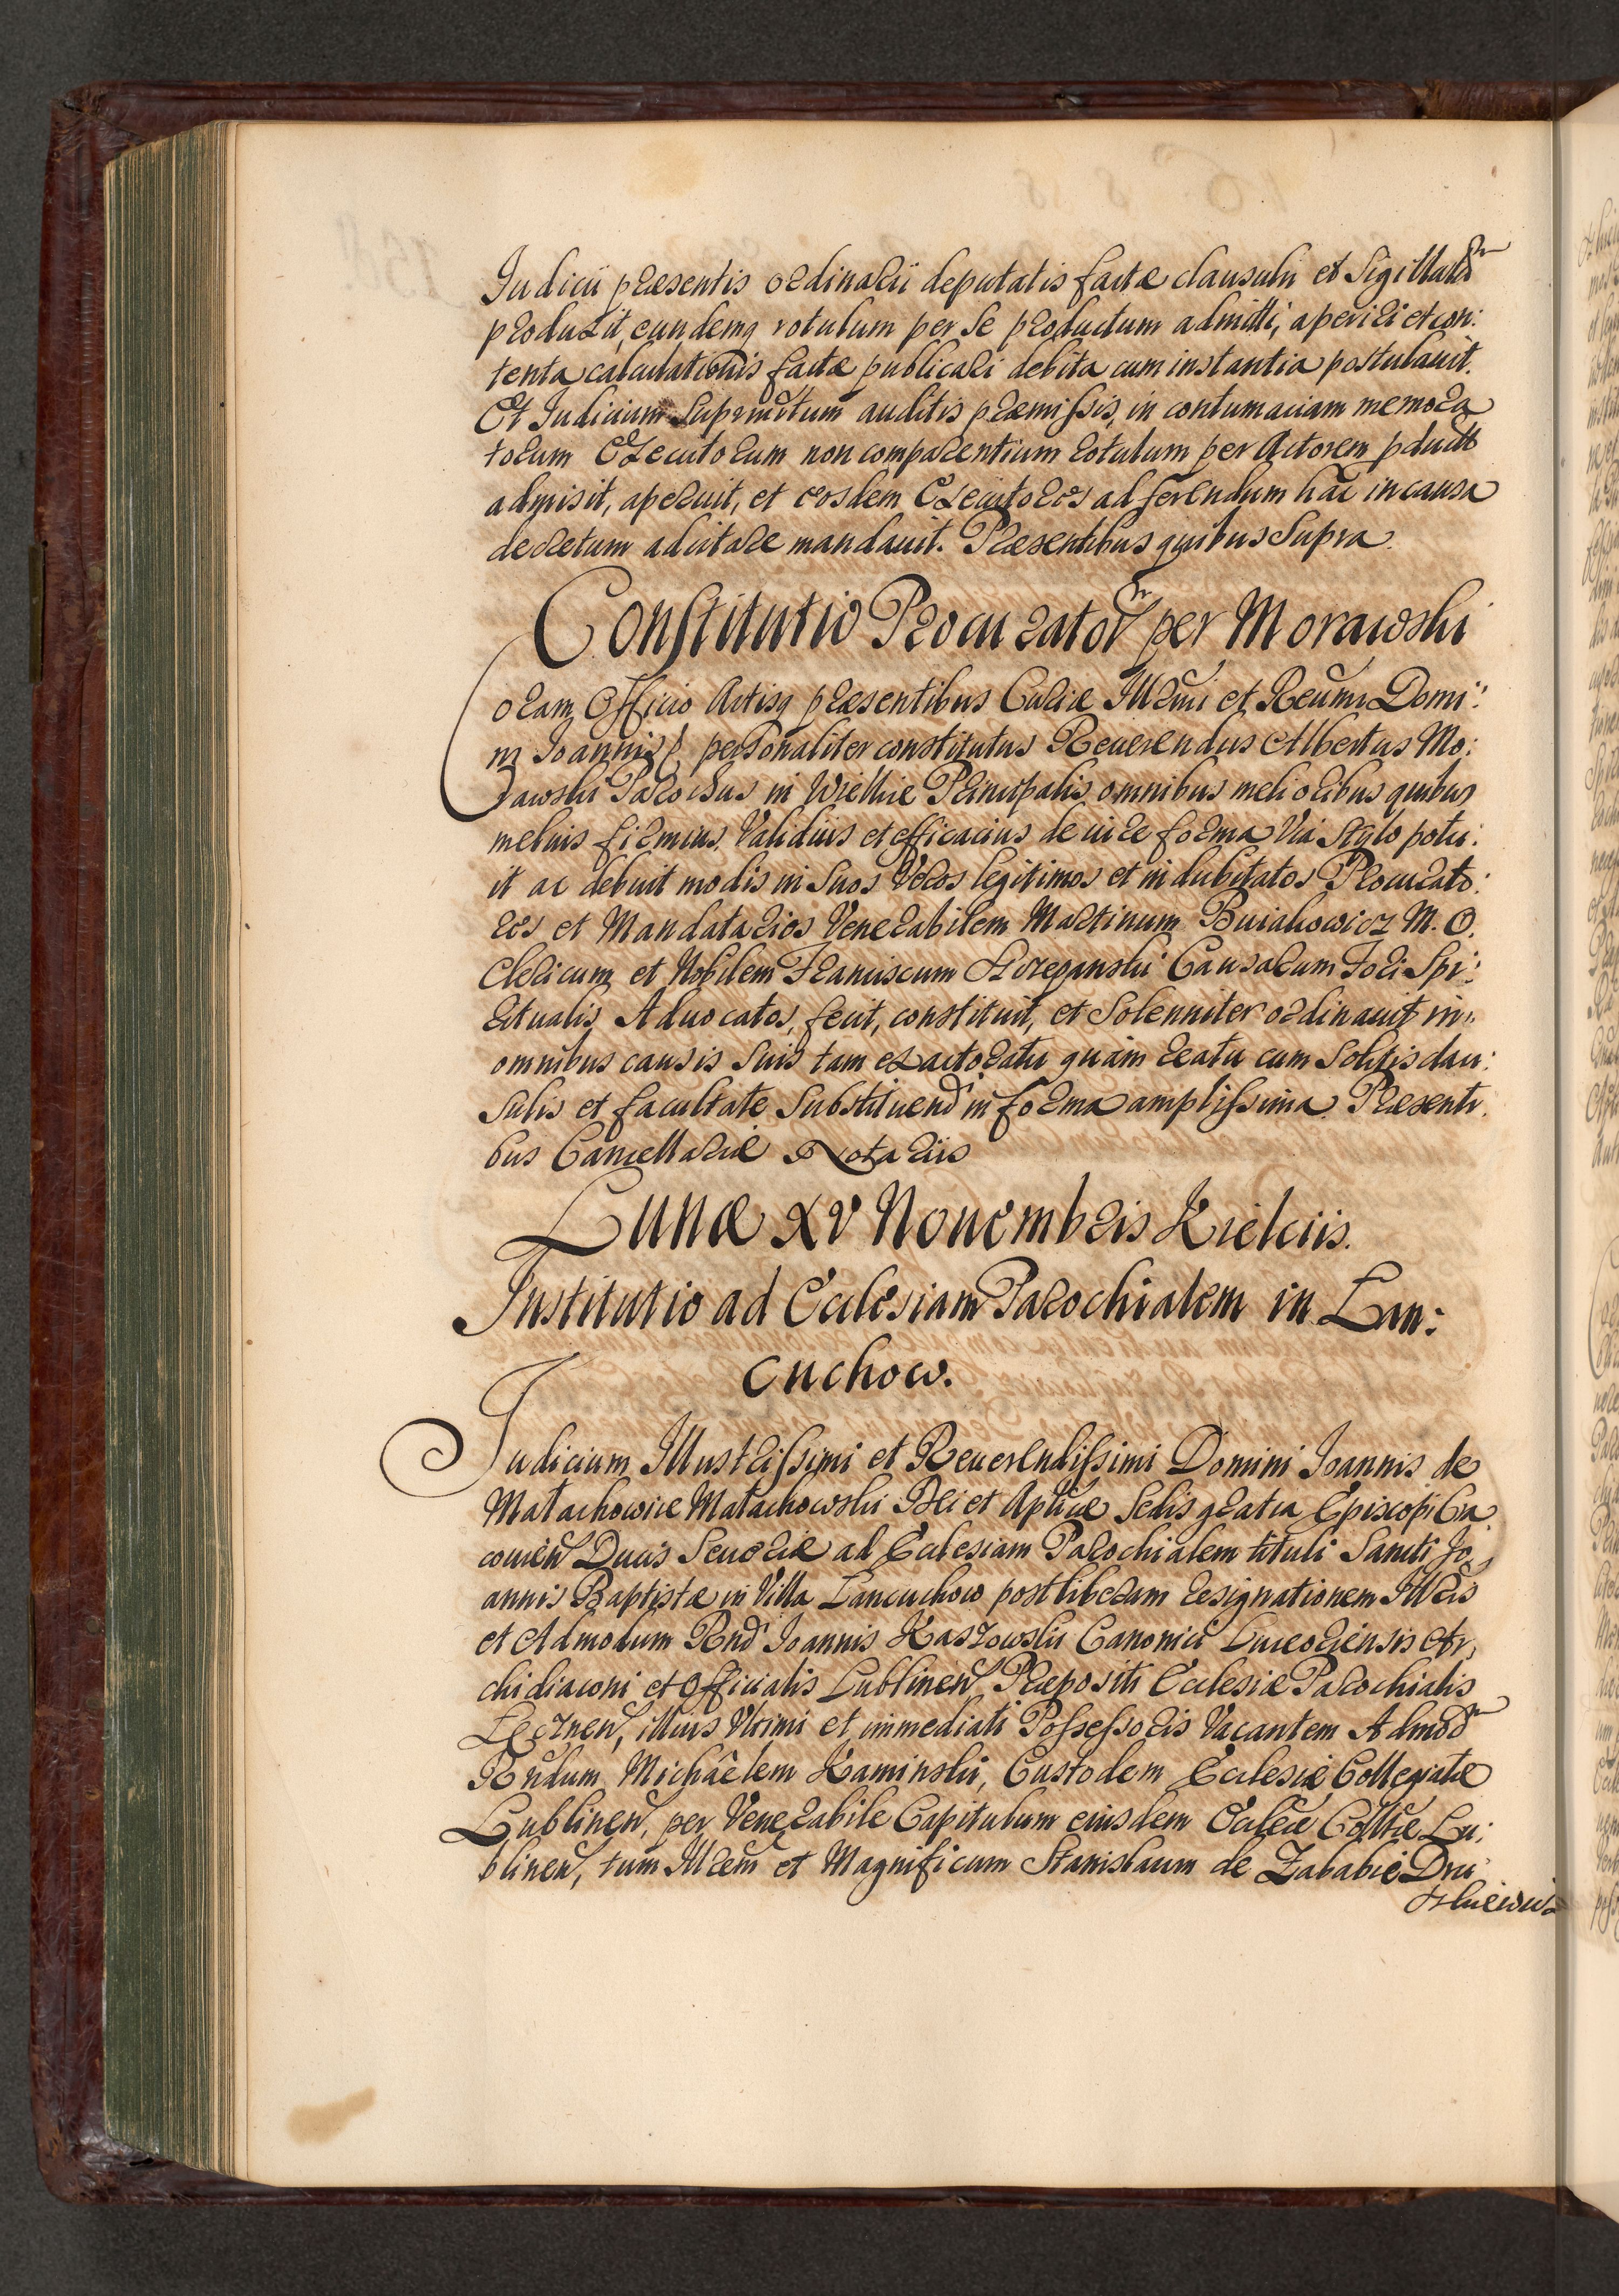 Judicii præsentis ordinarii deputatis factæ clausum et Sigillatũ
produxit, eundemq rotulum per se productum admitti, aperiri et con:
tenta calculationis factæ publicari debita cum instantia postulauit.
Et Judicium Supranotum auditis præmissis, in contumaciam memora
torum Executorum non comparentium rotulum per Actorem pductũ
admisit, aperuit, et eosdem Executores ad ferendum hac in causa
decretum adcitare mandauit. Præsentibus quibus Supra.
Constitutio Procurator per Morawski
Coram Officio Actisq præsentibus Curiæ Illmi et Reumi Domi:
ni Joannis personaliter constitutus Reuerendus Albertus Mo:
rawski Parochus in Principalis omnibus melioribus quibus
melius firmius, Validius et efficacius de iure forma Via Stylo potu:
it ac debuit modis in Suos Veros legitimos et indubitatos Procurato:
res et Mandatarios Venerabilem Martinum Buiakowicz M. O.
Clericum et Nobilem Franciscum Causarum Fori Spi:
ritualis Aduocatos, fecit, constituit, et Solenniter ordinauit in
omnibus causis Suis tam ex actoratu quàm reatu cum Solitis clau:
sulis et facultate Substituendi in forma amplissima. Præsenti
bus Cancellariæ Notariis
Lunæ XV Nouembris Kielciis.
Institutio ad Ecclesiam Parochialem in Lan:
cuchow.
Judicium Illustrissimi et Reuerendissimi Domini Joannis de
Małachowice Małachowski Dei et Aplicæ Sedis gratia Episcopi Cra
couien Ducis Seueriæ ad Ecclesiam Parochialem tituli Sancti Jo
annis Baptistæ in Villa Lancuchow post liberam resignationem Illris
et Admodum Rndi Joannis Kaszowski Canonici Luceoriensis Ar
chidiaconi et Officialis Lublinen Præpositi Ecclesiæ Parochialis
Łęcznen, illius Vltimi et immediati Possessoris Vacantem Admod
Rndum Michäelem Kaminski, Custodem Ecclesiæ Collegiatæ
Lublinen, per Venerabile Capitulum eiusdem Eccleæ Colltæ Lu:
blinen, tum Illrem et Magnificum Stanislaum de Zababie Dru